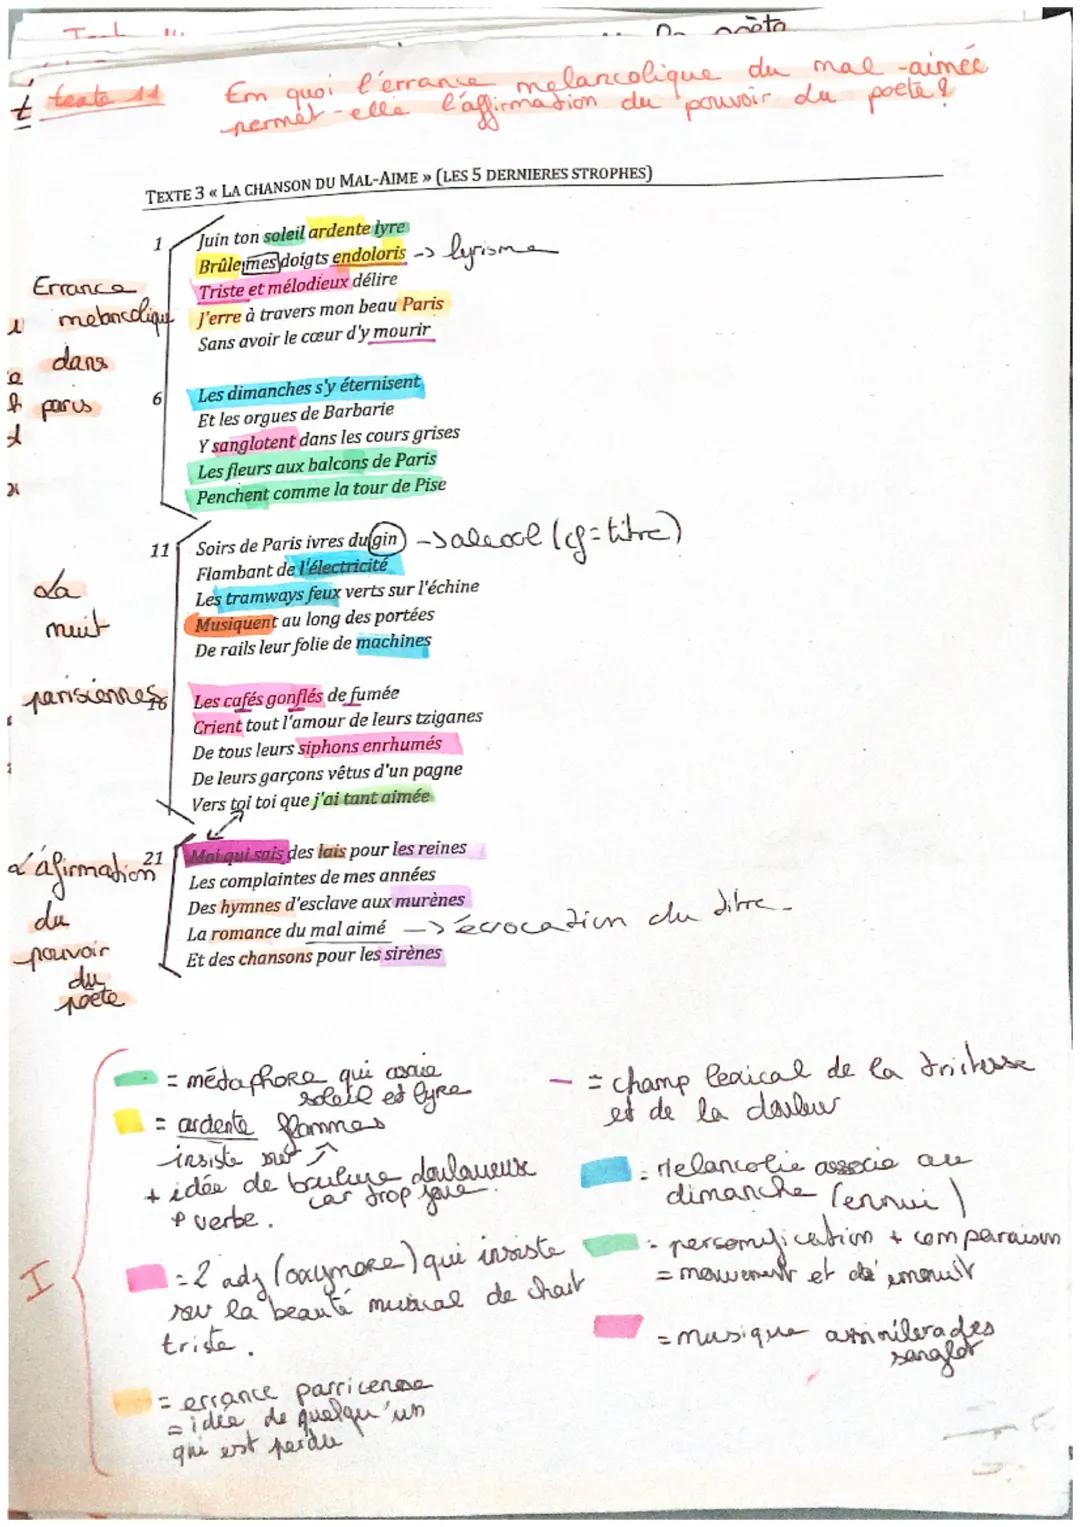 texte 11
En quoi l'errance melancolique du mal-aimée
permet-elle l'affirmation du pouvoir du poete ?
TEXTE 3 « LA CHANSON DU MAL-AIME » (LES 5 DERNIERES STROPHES)
1 Juin ton soleil ardente lyre
Brûle mes doigts endoloris -> lyrisme
Triste et mélodieux délire
J'erre à travers mon beau Paris
Sans avoir le cœur d'y mourir
Errance
melancolique
dans
paris
6 Les dimanches s'y éternisent
Et les orgues de Barbarie
Y sanglotent dans les cours grises
Les fleurs aux balcons de Paris
Penchent comme la tour de Pise
11 Soirs de Paris ivres du gin -> alcool (cf = titre)
Flambant de l'électricité
Les tramways feux verts sur l'échine
Musiquent au long des portées
De rails leur folie de machines
La
nuit
parisiennes
16 Les cafés gonflés de fumée
Crient tout l'amour de leurs tziganes
De tous leurs siphons enrhumés
De leurs garçons vêtus d'un pagne
Vers toi toi que j'ai tant aimée
21 Moi qui sais des lais pour les reines
Les complaintes de mes années
Des hymnes d'esclave aux murènes
La romance du mal aimé -> évocation du titre
Et des chansons pour les sirènes
L'afirmation
du
pouvoir
du
poete
I
= métaphore qui
soleil et lyre
= ardente flammes
insiste sur
+ idée de brulure douloureuse
car trop joue.
+ verbe.
= 2 adj (oxymore) qui insiste
sur la beauté musical de chant
triste.
= errance
= idée de quelqu'un
qui est perdu
= champ lexical de la tristesse
et de la douleur
= Melancolie associe au
dimanche (ennui)
= personnification + comparaison
= mouvement et
= musique
sanglot